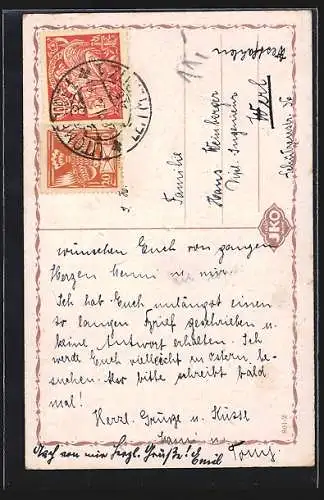 Westfalen
11,-
Familie
Hans Weinberger
Dipl. Ingenieur
Werl
JKO
wünschen Euch von ganzen
Herzen Menni u. mir.
Ich hab Euch unlängst einen
so langen Brief geschrieben u.
keine Antwort erhalten. Ich
werde Euch vielleicht zu Ostern be-
suchen. Aber bitte schreibt bald
mal!
Herzl. Grüsse u. Küsse
Auch von mir herzl. Grüße! Emil